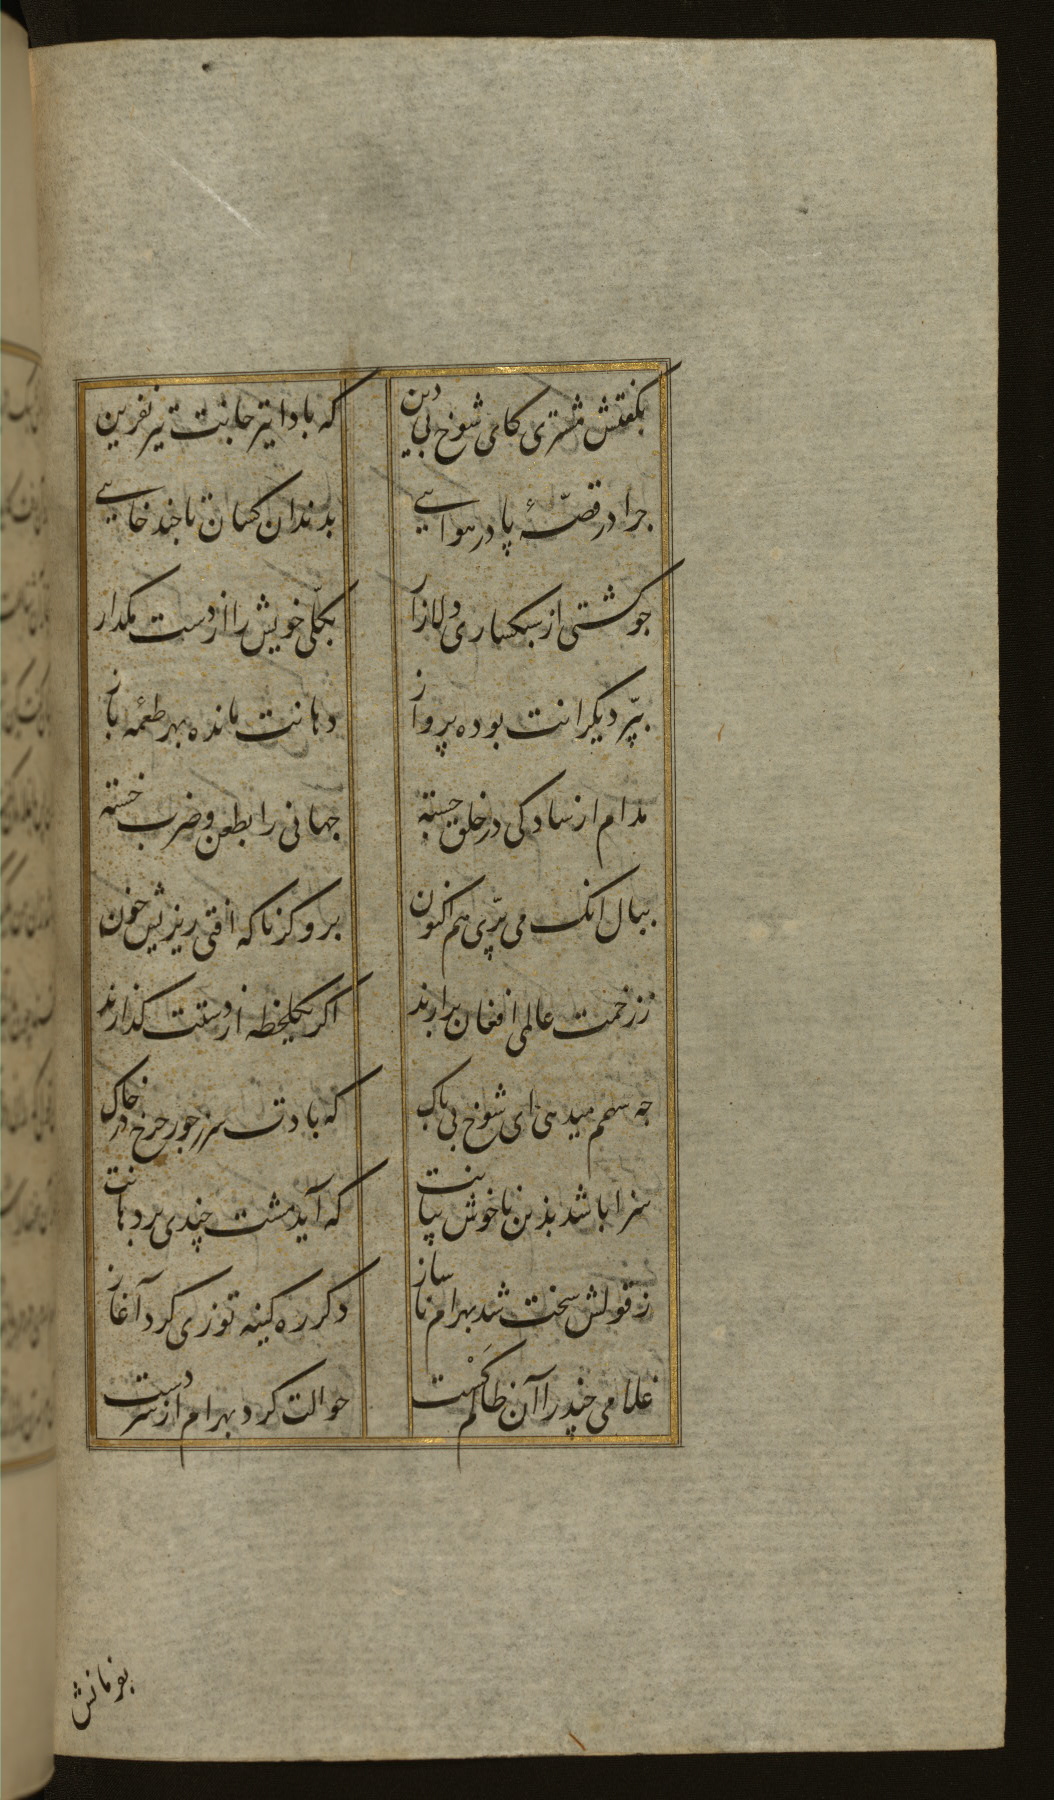 بکفتش مشتری کای شوخ بی دین
که بادا تیر جانت تیر نفرین
جرا در قصّهٔ پا در هوایی
بدندان کسان تا جند خایی
جو کشتی از سبکساری دلازار
بکلّی خویش را از دست مکذار
بپرّ دیکرانت بوده پرواز
دهانت مانده بهر طعمه باز
مدام از سادکی در خلق جسته
جهانی را بطعن و ضرب خسته
ببال انک می پرّی هم اکنون
برو کز ناکه افتی ریزیش خون
ز زخمت عالمی افغان برارند
اکر یکلحظه از دستت کذارند
جه سهم میدهی ای شوخ بی باک
که بادت سر ز جور جرخ در خاک
سزا باشد بذین ناخوش بیانت
که آید مشت چندی بر دهانت
ز قولش سخت شد بهرام ناساز
دکر ره کینه توزی کرد آغاز
غلامی چند را آن ظالم کست
حوالت کرد بهرام از سر دست
بفرمانش